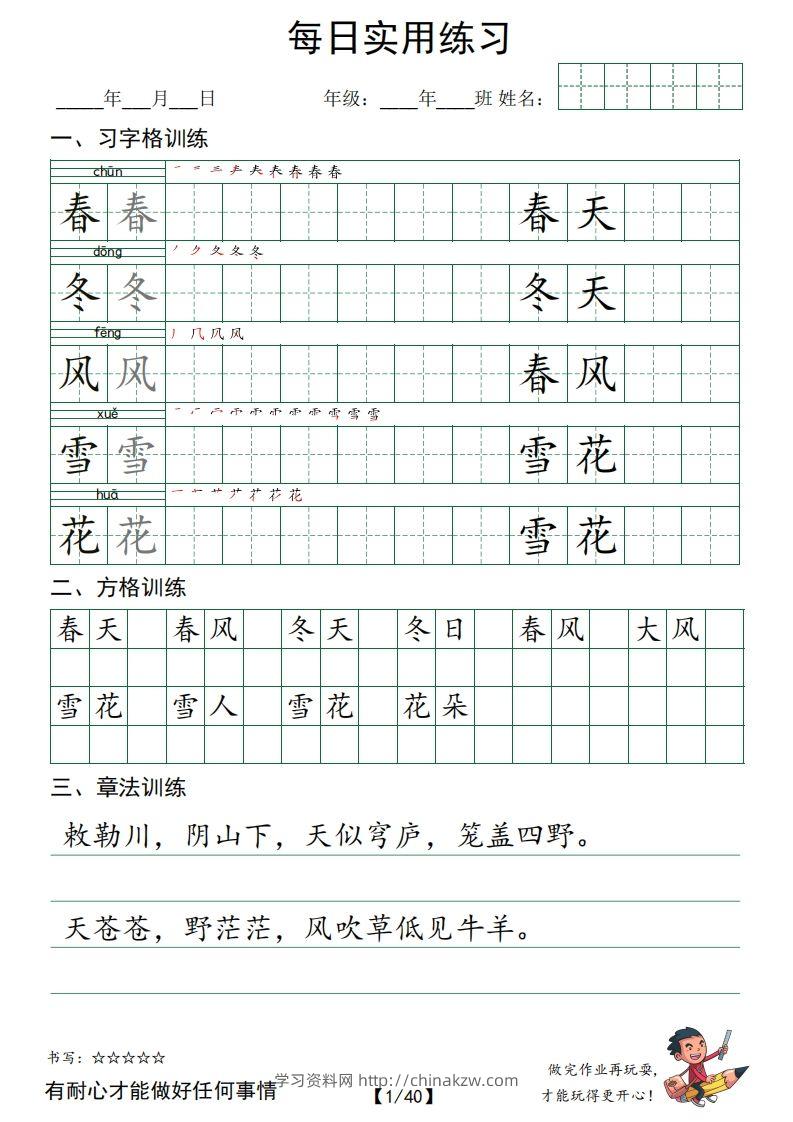 每日实用练习
_____年___月___日 年级：____年____班 姓名：
一、习字格训练
chūn
春 春 春 天
dōng
冬 冬 冬 天
fēng
风 风 春 风
xuě
雪 雪 雪 花
huā
花 花 雪 花
二、方格训练
春天 春风 冬天 冬日 春风 大风
雪花 雪人 雪花 花朵
三、章法训练
敕勒川，阴山下，天似穹庐，笼盖四野。
天苍苍，野茫茫，风吹草低见牛羊。
书写：☆☆☆☆☆
有耐心才能做好任何事情
学习资料网 http://chinakzw.com
【1/40】
做完作业再玩耍，
才能玩得更开心！